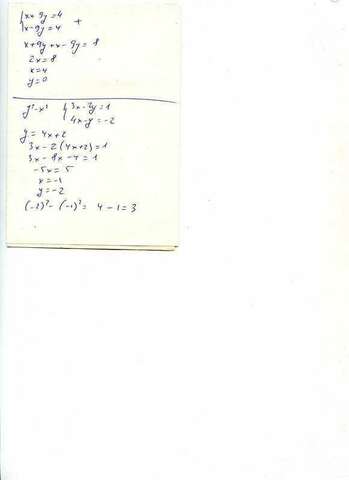 {x+9y=4 +
{x-9y=4
x+9y+x-9y=8
2x=8
x=4
y=0
y²-x² {3x-2y=1
{4x-y=-2
y=4x+2
3x-2(4x+2)=1
3x-8x-4=1
-5x=5
x=-1
y=-2
(-2)²-(-1)²= 4-1=3